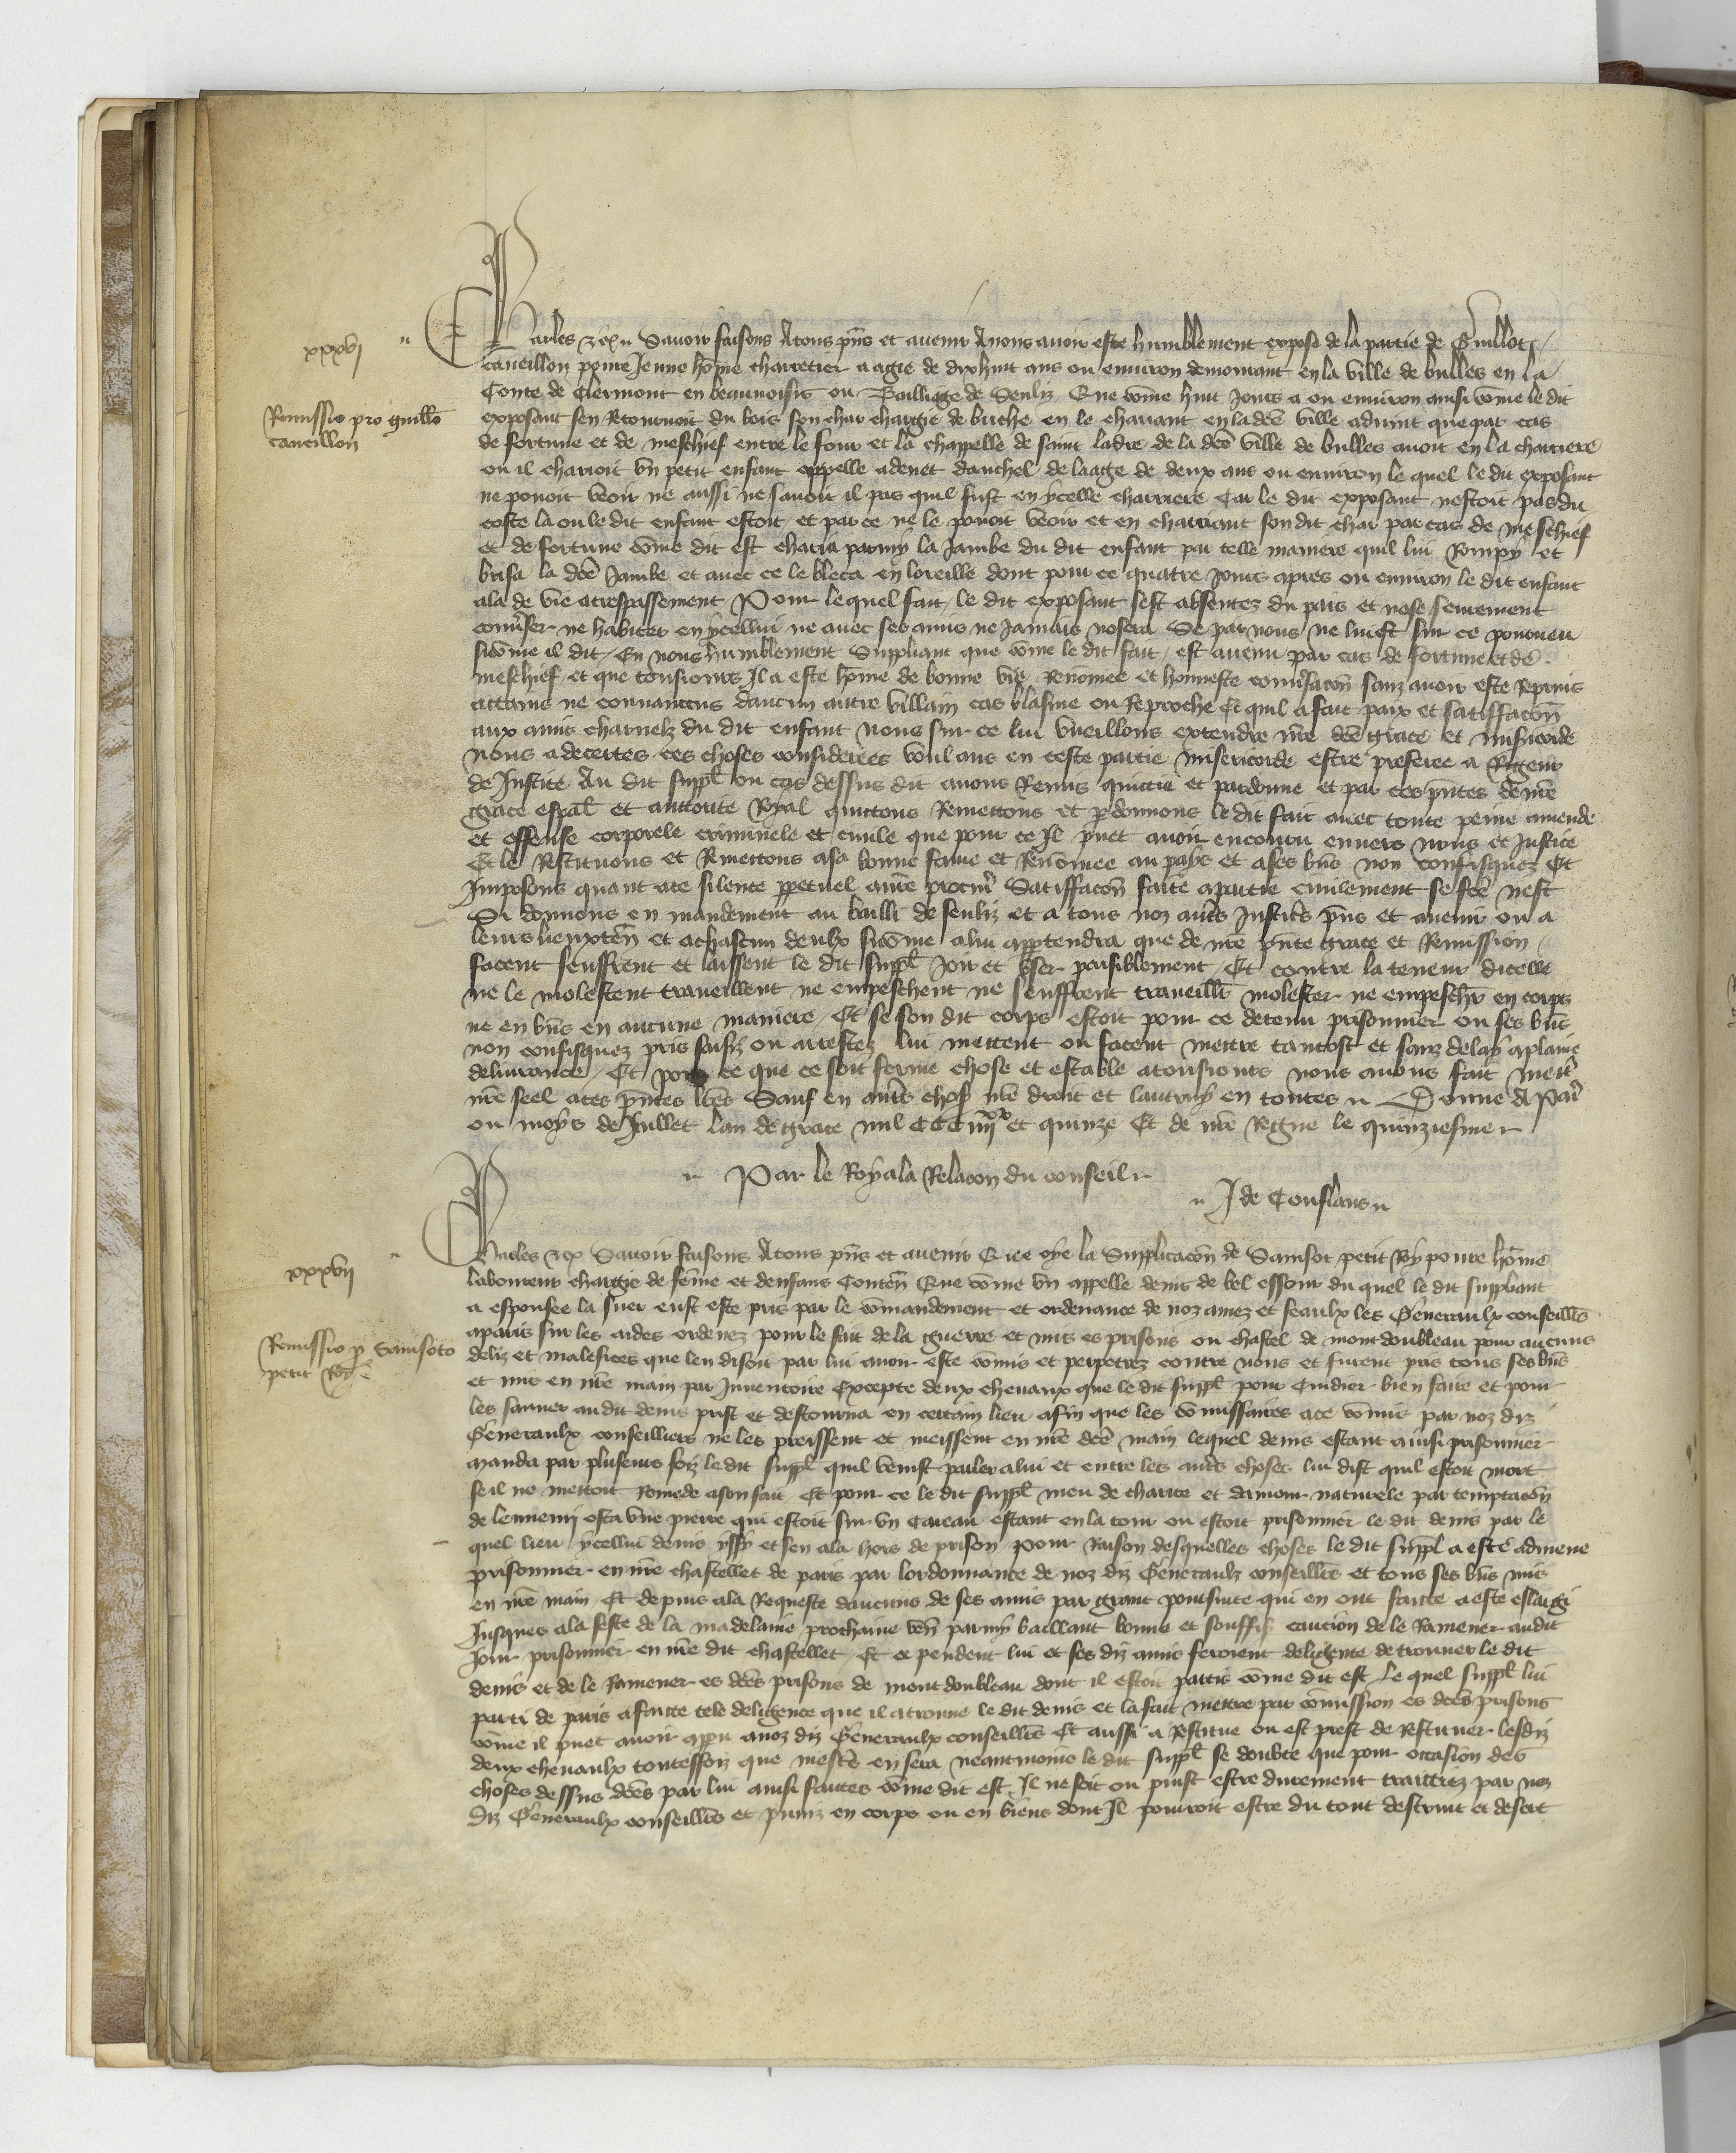 xxxvi
Remissio pro Guill̄o
caveillon
Charles etc. Savoir faisons a tous p̄ns et avenir A nous avoir este humblement expose de la partie de Guillot
caveillon povre Jeune hōme charretier aagie de dix huit ans ou environ demourant en la ville de bulles en la
Conte de Clermont en beauvoisis ou Bailliage de Senliz Que cōme huit Jours a ou environ ainsi cōme le dit
exposant sen Retournoit du bois son char chargie de buche en le chariant en la dc̄e ville advint que par cas
de fortune et de meschief entre le four et la chappelle de saint ladre de la dc̄e ville de bulles avoit en la charriere
ou il charioit un petit enfant appelle adenet danchel de laage de deux ans ou environ le quel le dit exposant
ne povoit veoir ne aussi ne savoit il pas quil fust en ycelle charriere Car le dit exposant nestoit pas du
coste la ou le dit enfant estoit et par ce ne le povoit veoir et en charriant son dit char par cas de meschief
et de fortune cōme dit est charia parmy la Jambe du dit enfant par telle maniere quil lui Rompy et
brisa la dc̄e Jambe et avec ce le bleca en loreille dont pour ce quatre Jours apres ou environ le dit enfant
ala de vie a trespassement Pour lequel fait le dit exposant sest absentez du pais et nose seurement
conv̄ser ne habiter en ycellui ne avec ses amis ne Jamais nosera Se par nous ne lui est sur ce pourveu
sicōme il dit En nous humblement Suppliant que cōme le dit fait est avenu par cas de fortune et de
meschief et que tousiours Il a este hōme de bonne vie Renōmee et honneste conv̄sacōn sanz avoir este Repris
attaint ne convaincus daucun autre villain cas blasme ou Reproche Et quil a fait paix et satisfacōn
aux amis charnelz du dit enfant nous sur ce lui vueillons extendre nr̄e dc̄e grace et misericorde
Nous adecertes ces choses considerees voulans en ceste partie misericorde estre preferee a Rigeur
de Justice Au dit suppl̄ ou cas dessus dit avons Remis quictie et pardonne et par ces p̄ntes de nr̄e
grace esp̄al et auctorite Royal quittons Remettons et p̱donnons le dit fait avec toute peine amende
et offense corporele criminele et civile que pour ce Il puet avoir encouru envers nous et Justice
Et le Restituons et Remettons a sa bonne fame et Renōmee au pays et a ses bn̄s non confisquez Et
Imposons quant a ce silence p̱petuel a nr̄e procur̄ Satisfacōn faite a partie civilement se fc̄e nest
Si donnons en mandement au bailli de senliz et a tous noz aut̄s Justic̄s p̄ns et avenir ou a
leurs lieuxten̄ et a chascun deulx sicōme a lui app̱tendra que de nr̄e p̄nte grace et Remission
facent seuffrent et laissent le dit suppl̄ Joir et user paisiblement Et contre la teneur dicelle
ne le molestent traveillent ne empeschent ne seuffrent traveill̄r molester ne empesch̄r en corps
ne en bn̄s en aucune maniere Et se son dit corps estoit pour ce detenu prisonnier ou ses bn̄s
non confisquez pris saisiz ou arrestez lui mettent ou facent mettre tantost et sanz delay a plaine
delivrance Et pour ce que ce soit ferme chose et estable a tousiours nous avons fait mett̄
nr̄e seel a ces p̄ntes lr̄es Sauf en aut̄s chos̄ nr̄e droit et lautruy en toutes Donne A Par̄
ou moys de Juillet lan de grace mil CCC iiiixx et quinze Et de nr̄e Regne le quinziesme
Par le Roy a la Relacon du conseil
J de Conflans
xxxvii
Remissio p̱ Samsoto
petit Roy
Charles etc Savoir faisons A tous p̄ns et avenir Q̄ oye la Supplicacōn de Samsot petit Roy povre hōme
laboureur chargie de fēme et denfans Conten̄ Que cōme un appelle denis de bel essour du quel le dit suppliant
a espousee la suer eust este pris par le cōmandement et ordenance de noz amez et feaulx les Generaulx conseill̄rs
a paris sur les aides ordenez pour le fait de la guerre et mis es prisons ou chastel de mont doubleau pour aucuns
deliz et malefices que len disoit par lui avoir este cōmis et perpetrez contre nous et furent pris tous ses bn̄s
et mis en nr̄e main par Inventoire Excepte deux chevaux que le dit suppl̄ pour Cuidier bien faire et pour
les sauver au dit denis prist et destourna en certain lieu afin que les cōmissaires a ce cōmis par noz diz
Generaulx conseilliers ne les preissent et meissent en nr̄e dc̄e main lequel denis estant ainsi prisonnier
manda par plusieurs foiz le dit suppl̄ quil venist parler a lui et entre les aut̄s choses lui dist quil estoit mort
se il ne mettoit remede a son fait Et pour ce le dit suppl̄ meu de charite et damour naturele par temptacōn
de lennemi osta une pierre qui estoit sur un Caveau estant en la tour ou estoit prisonnier le dit denis par le
quel lieu ycellui denis yssy et sen ala hors de prison pour Raison desquelles choses le dit suppl̄ a este admene
prisonnier en nr̄e chastellet de paris par lordonnance de noz diz Generaulx conseill̄rs et tous ses bn̄s mis
en nr̄e main Et depuis a la Requeste daucuns de ses amis par grant poursuite qui en ont faicte a este eslargi
Jusques a la feste de la madelaine prochaine ven̄ parmy baillant bonne et souffis̄ caucion de le Ramener au dit
Jour prisonnier en nr̄e dit chastellet Et ce pendent lui et ses diz amis feroient deligence de trouver le dit
denis et de le Ramener es dc̄es prisons de mont doubleau dont il estoit partis cōme dit est Le quel suppl̄ lui
parti de paris a faicte tele deligence que il a trouve le dit denis et la fait mettre par cōmission es dc̄es prisons
cōme il puet avoir appu a noz diz Generaulx conseill̄rs Et aussi a Restitue ou est prest de Restituer lesdiz
deux chevaulx toutesfoiz que mest̄ en sera neantmoins le dit suppl̄ se doubte que pour occasion des
choses dessus dc̄es par lui ainsi faictes cōme dit est Il ne soit ou puist estre durement traictiez par noz
diz Generaulx conseill̄rs et puniz en corps ou en biens dont Il pourroit estre du tout destruit et desert